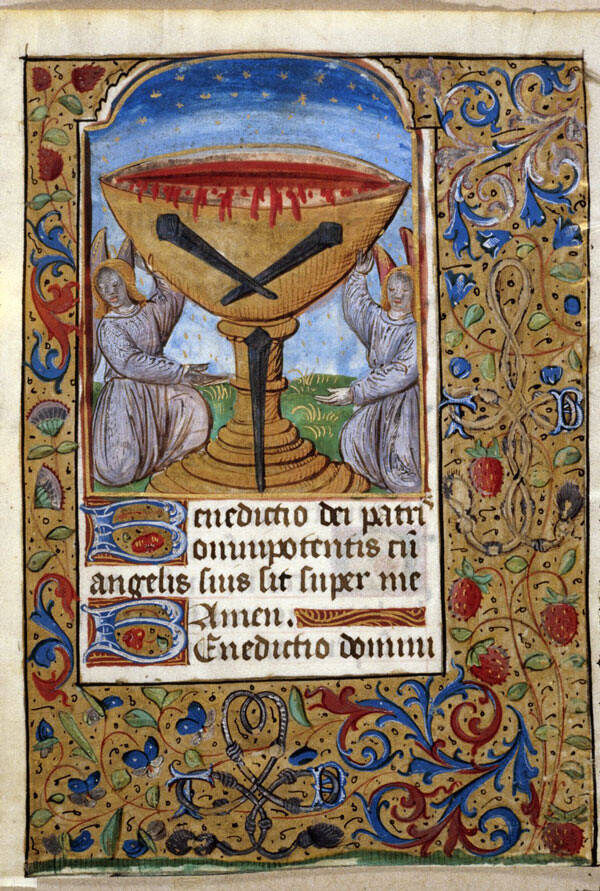 Benedictio dei patris
omnipotentis cū
angelis suis sit super me
Amen.
BEnedictio domini